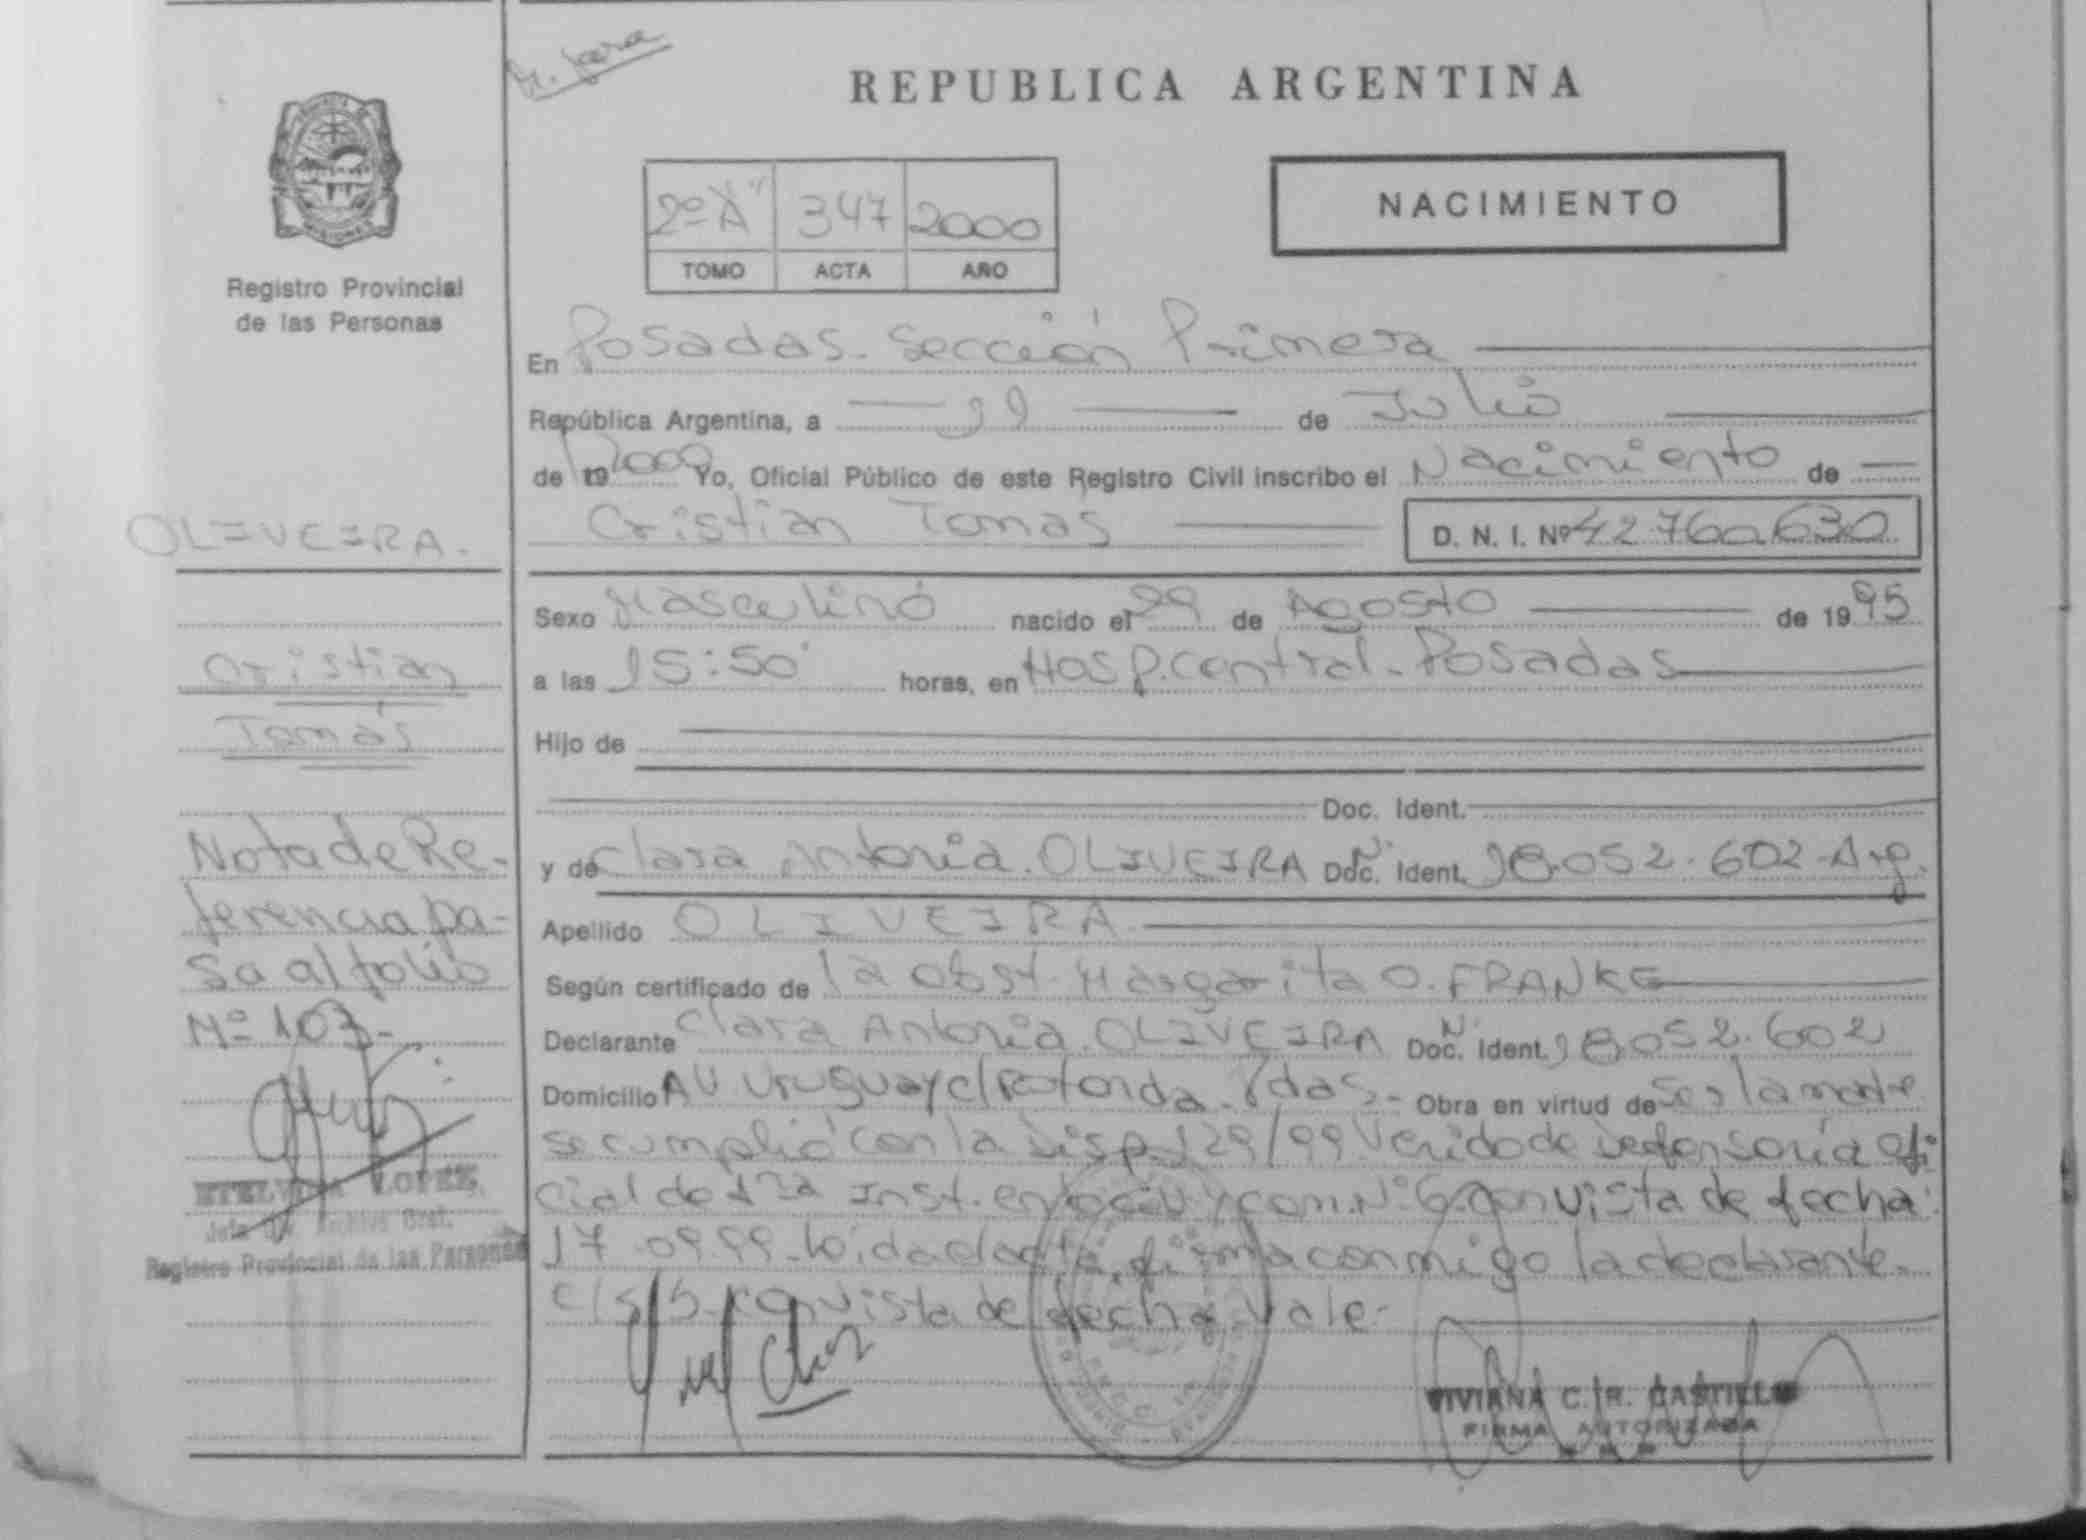 REPUBLICA ARGENTINA
NACIMIENTO
2º "A" 347 2000
TOMO ACTA AÑO
MISIONES
Registro Provincial
de las Personas
En Posadas. Sección Primera
República Argentina, a de Julio
de 19 2000 Yo, Oficial Público de este Registro Civil inscribo el Nacimiento de
Cristian Tomás D. N. I. Nº 42.760.630
Sexo Masculino nacido el 29 de Agosto de 1995
a las 15:50 horas, en Hosp. Central - Posadas
Hijo de
Doc. Ident.
y de Clara Antonia. OLIVEIRA Doc. Ident. Nº 18.052.602 - Arg.
Apellido OLIVEIRA
Según certificado de la Obst. Margarita O. FRANKE
Declarante Clara Antonia. OLIVEIRA Doc. Ident. Nº 18.052.602
Domicilio AV Uruguay c/ Rotonda. Pdas.- Obra en virtud de ser la madre
se cumplió con la Disp. 129/99 Venido de Defensoría Ofi
cial de 1ra Inst. en lo Civ. y Com. Nº 6. con vista de fecha
17.09.99 - Leída el acta, firma conmigo la declarante.
E/S/B. con vista de fecha. Vale-
VIVIANA C. R. CASTILLO
FIRMA AUTORIZADA
OLIVEIRA.
Cristian
Tomás
Nota de Re-
ferencia pa-
sa al folio
Nº 103-
ETELVINA LOPEZ
Jefe Archivo Gral.
Registro Provincial de las Personas